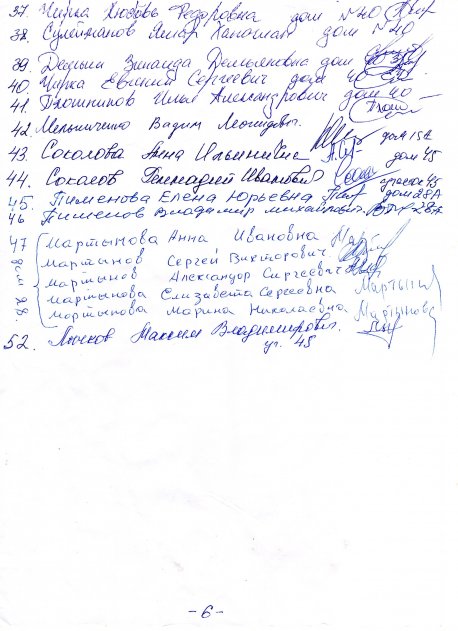 37. Чирка Любовь Федоровна дом №40
38. Сулейманов дом №40
39. Зинаида Демьяновна дом
40. Чирка Евгений Сергеевич дом 40
41. Плотников Илья Александрович дом 40
42. Мельниченко Вадим Леонидович. дом 15А
43. Соколова Анна Ильинична дом 45
44. Соколов Геннадий Иванович 45
45. Пименова Елена Юрьевна дом 28А
46 Пименов Владимир Михайлович. 28А
47 Мартынова Анна Ивановна
Мартынов Сергей Викторович.
Мартынов Александр Сергеевич
Мартынова Елизавета Сергеевна
Мартынова Марина Николаевна
52. Лычков Максим Владимирович.
45
-6-